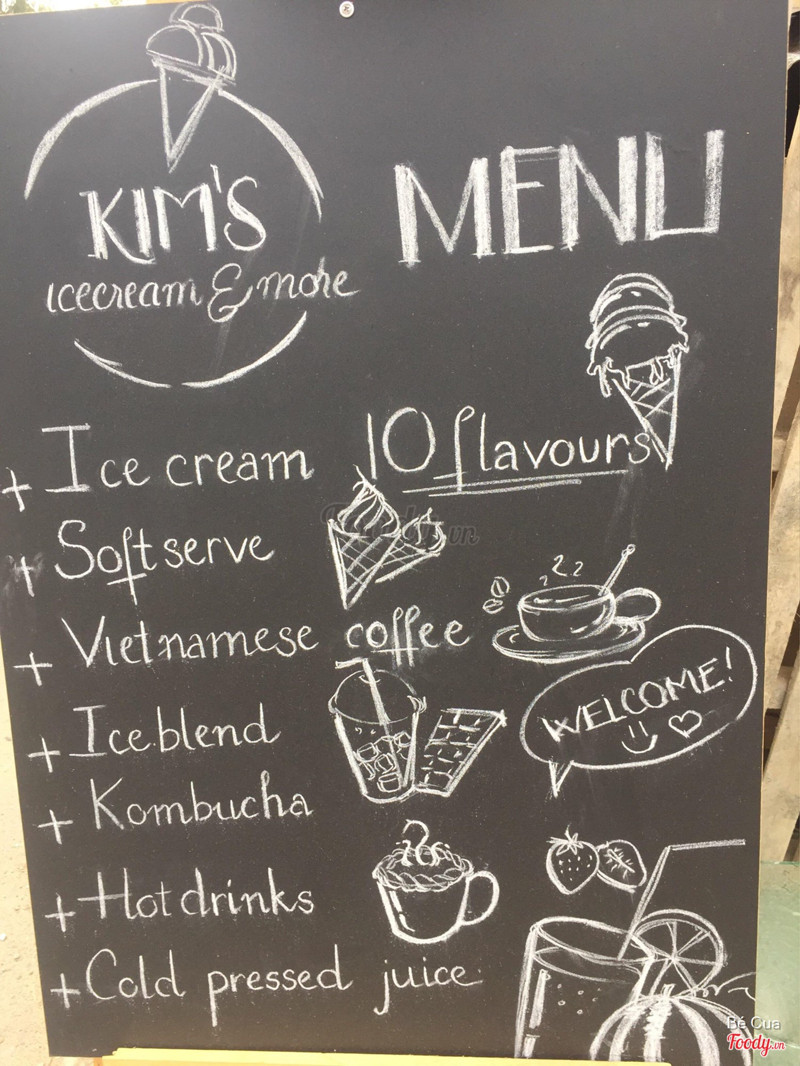 KIM'S
icecream & more
MENU
+ Ice cream 10 flavours
+ Soft serve
+ Vietnamese coffee
+ Ice.blend
WELCOME!
+ Kombucha
+ Hot drinks
+ Cold pressed juice
Bé Cua
Foody.vn